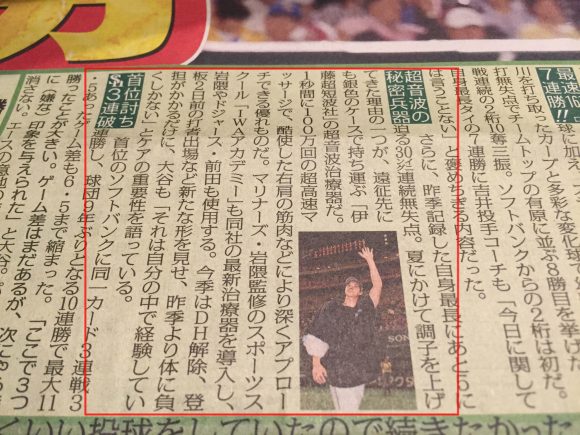 7連勝!!
球に加え、
川を打ち取ったカーブと多彩な変化球
打無失点でチームトップの有原に並ぶ8勝目を挙げた
戦連続の2桁10奪三振。ソフトバンクからの2桁は初だ。
自身最長タイの7連勝に吉井投手コーチも「今日に関して
は言うことない」と褒めちぎる内容だった。
さらに、昨季記録した自身最長にあと5に
超音波の
秘密兵器
迫る30 2/3連続無失点。夏にかけて調子を上げ
てきた理由の一つが、遠征先に
も銀色のケースで持ち運ぶ「伊
藤超短波社の超音波治療器だ。
1秒間に100万回の超高速マ
ッサージで、酷使した右肩の筋肉などにより深くアプロー
チできる優れものだ。マリナーズ・岩隈監修のスポーツス
クール「IWAアカデミー」も同社の最新治療器を導入し、
岩隈やドジャース・前田も使用する。今季はDH解除、登
板2日前の打者出場など新たな形を見せ、昨季より体に負
担がかかるだけに、大谷も「それは自分の中で経験してい
くしかない」とケアの重要性を語っている。
首位討ち
S3連破
首位のソフトバンクに同一カード3連戦3
連勝し、球団9年ぶりとなる10連勝で最大11
・5あったゲーム差も6・5まで縮まった。「ここで3つ
勝ったことが大きい。ゲーム差はまだあるが、次
に(嫌な)印象を与えられた」と大谷。
消さない。エースの意地の
くいい投球をしていたので続きたかった